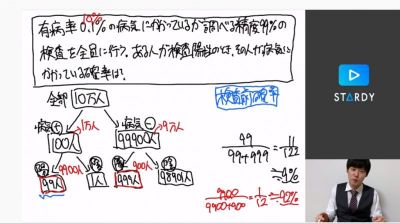 10%
有病率0.1%の病気にかかっているか調べる精度99%の
検査を全員に行う。ある人が検査陽性のとき、その人が病気に
かかっている確率は?
全部 10万人
検査前確率
病気(+) 1万人
病気(−) 9万人
100人
99900人
陽 9900人
陰
陽 900人
陰
99人
1人
999人
98901人
99
99+999
=
11
122
≒9%
9900
9900+900
=
11
12
≒92%
STARDY